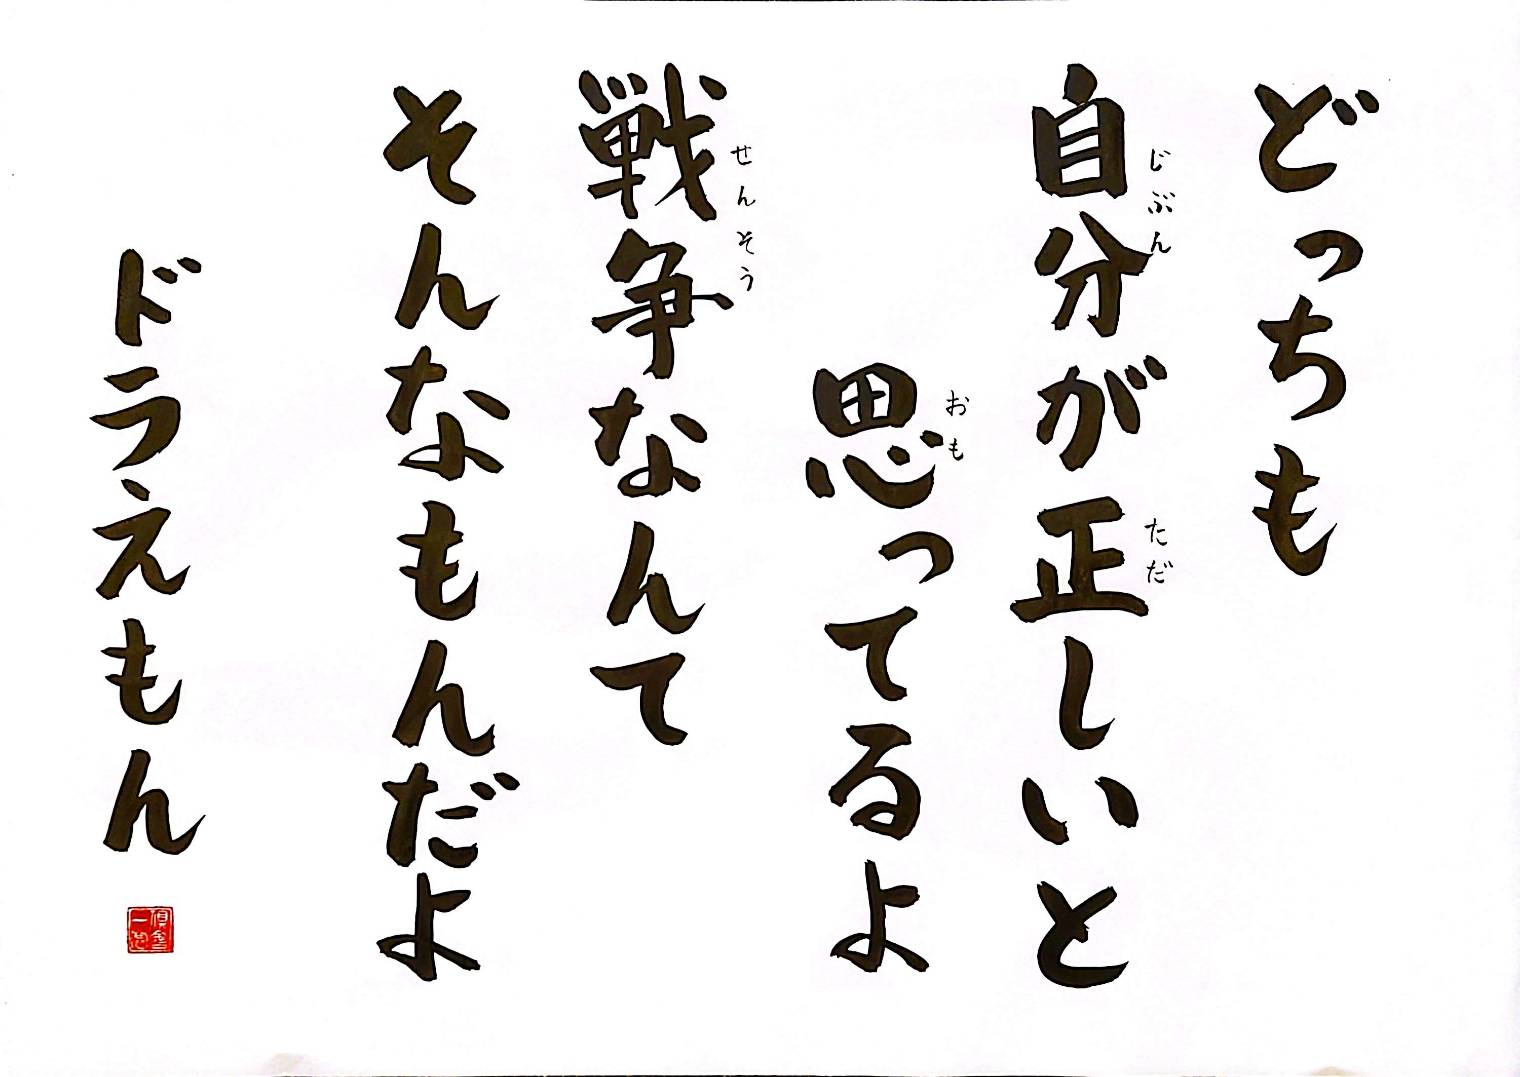 どっちも
自分が正しいと
じぶん
ただ
思ってるよ
おも
戦争なんて
せんそう
そんなもんだよ
ドラえもん